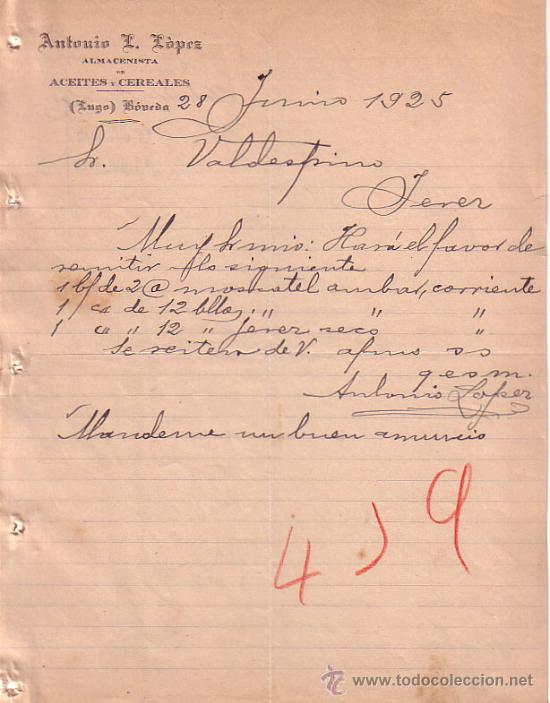 Antonio L. Lòpez
ALMACENISTA
DE
ACEITES Y CEREALES
(Lugo) Bóveda 28 Junio 1925
Sr. Valdespino
Jerez
Muy Sr mio: Hará el favor de
remitir lo siguiente
1 b/ de 2 @ moscatel ambar, corriente
1/ ca de 12 blls, „ „ „
1 ca „ 12 „ Jerez seco „
Se reitera de V. afmo ss
q e s m.
Antonio Lopez
Mandeme un buen anuncio
4 5 9
todocoleccion.net